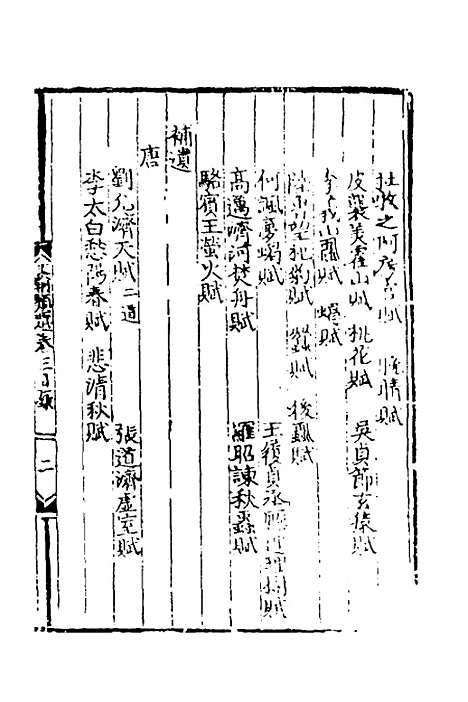 杜牧之阿房宮賦 晚晴賦
皮襲美霍山賦 桃花賦 吳貞節玄猿賦
李 山 賦 賦
陸魯望杞菊賦 蠶賦 後蝨賦
何諷夢渴賦 王 貞 賦
高邁濟河焚舟賦 羅昭諫秋蟲賦
駱賓王螢火賦
補遺
唐
劉允濟天賦二道 張道濟虛室賦
李太白愁陽春賦 悲清秋賦
卷三目錄 二